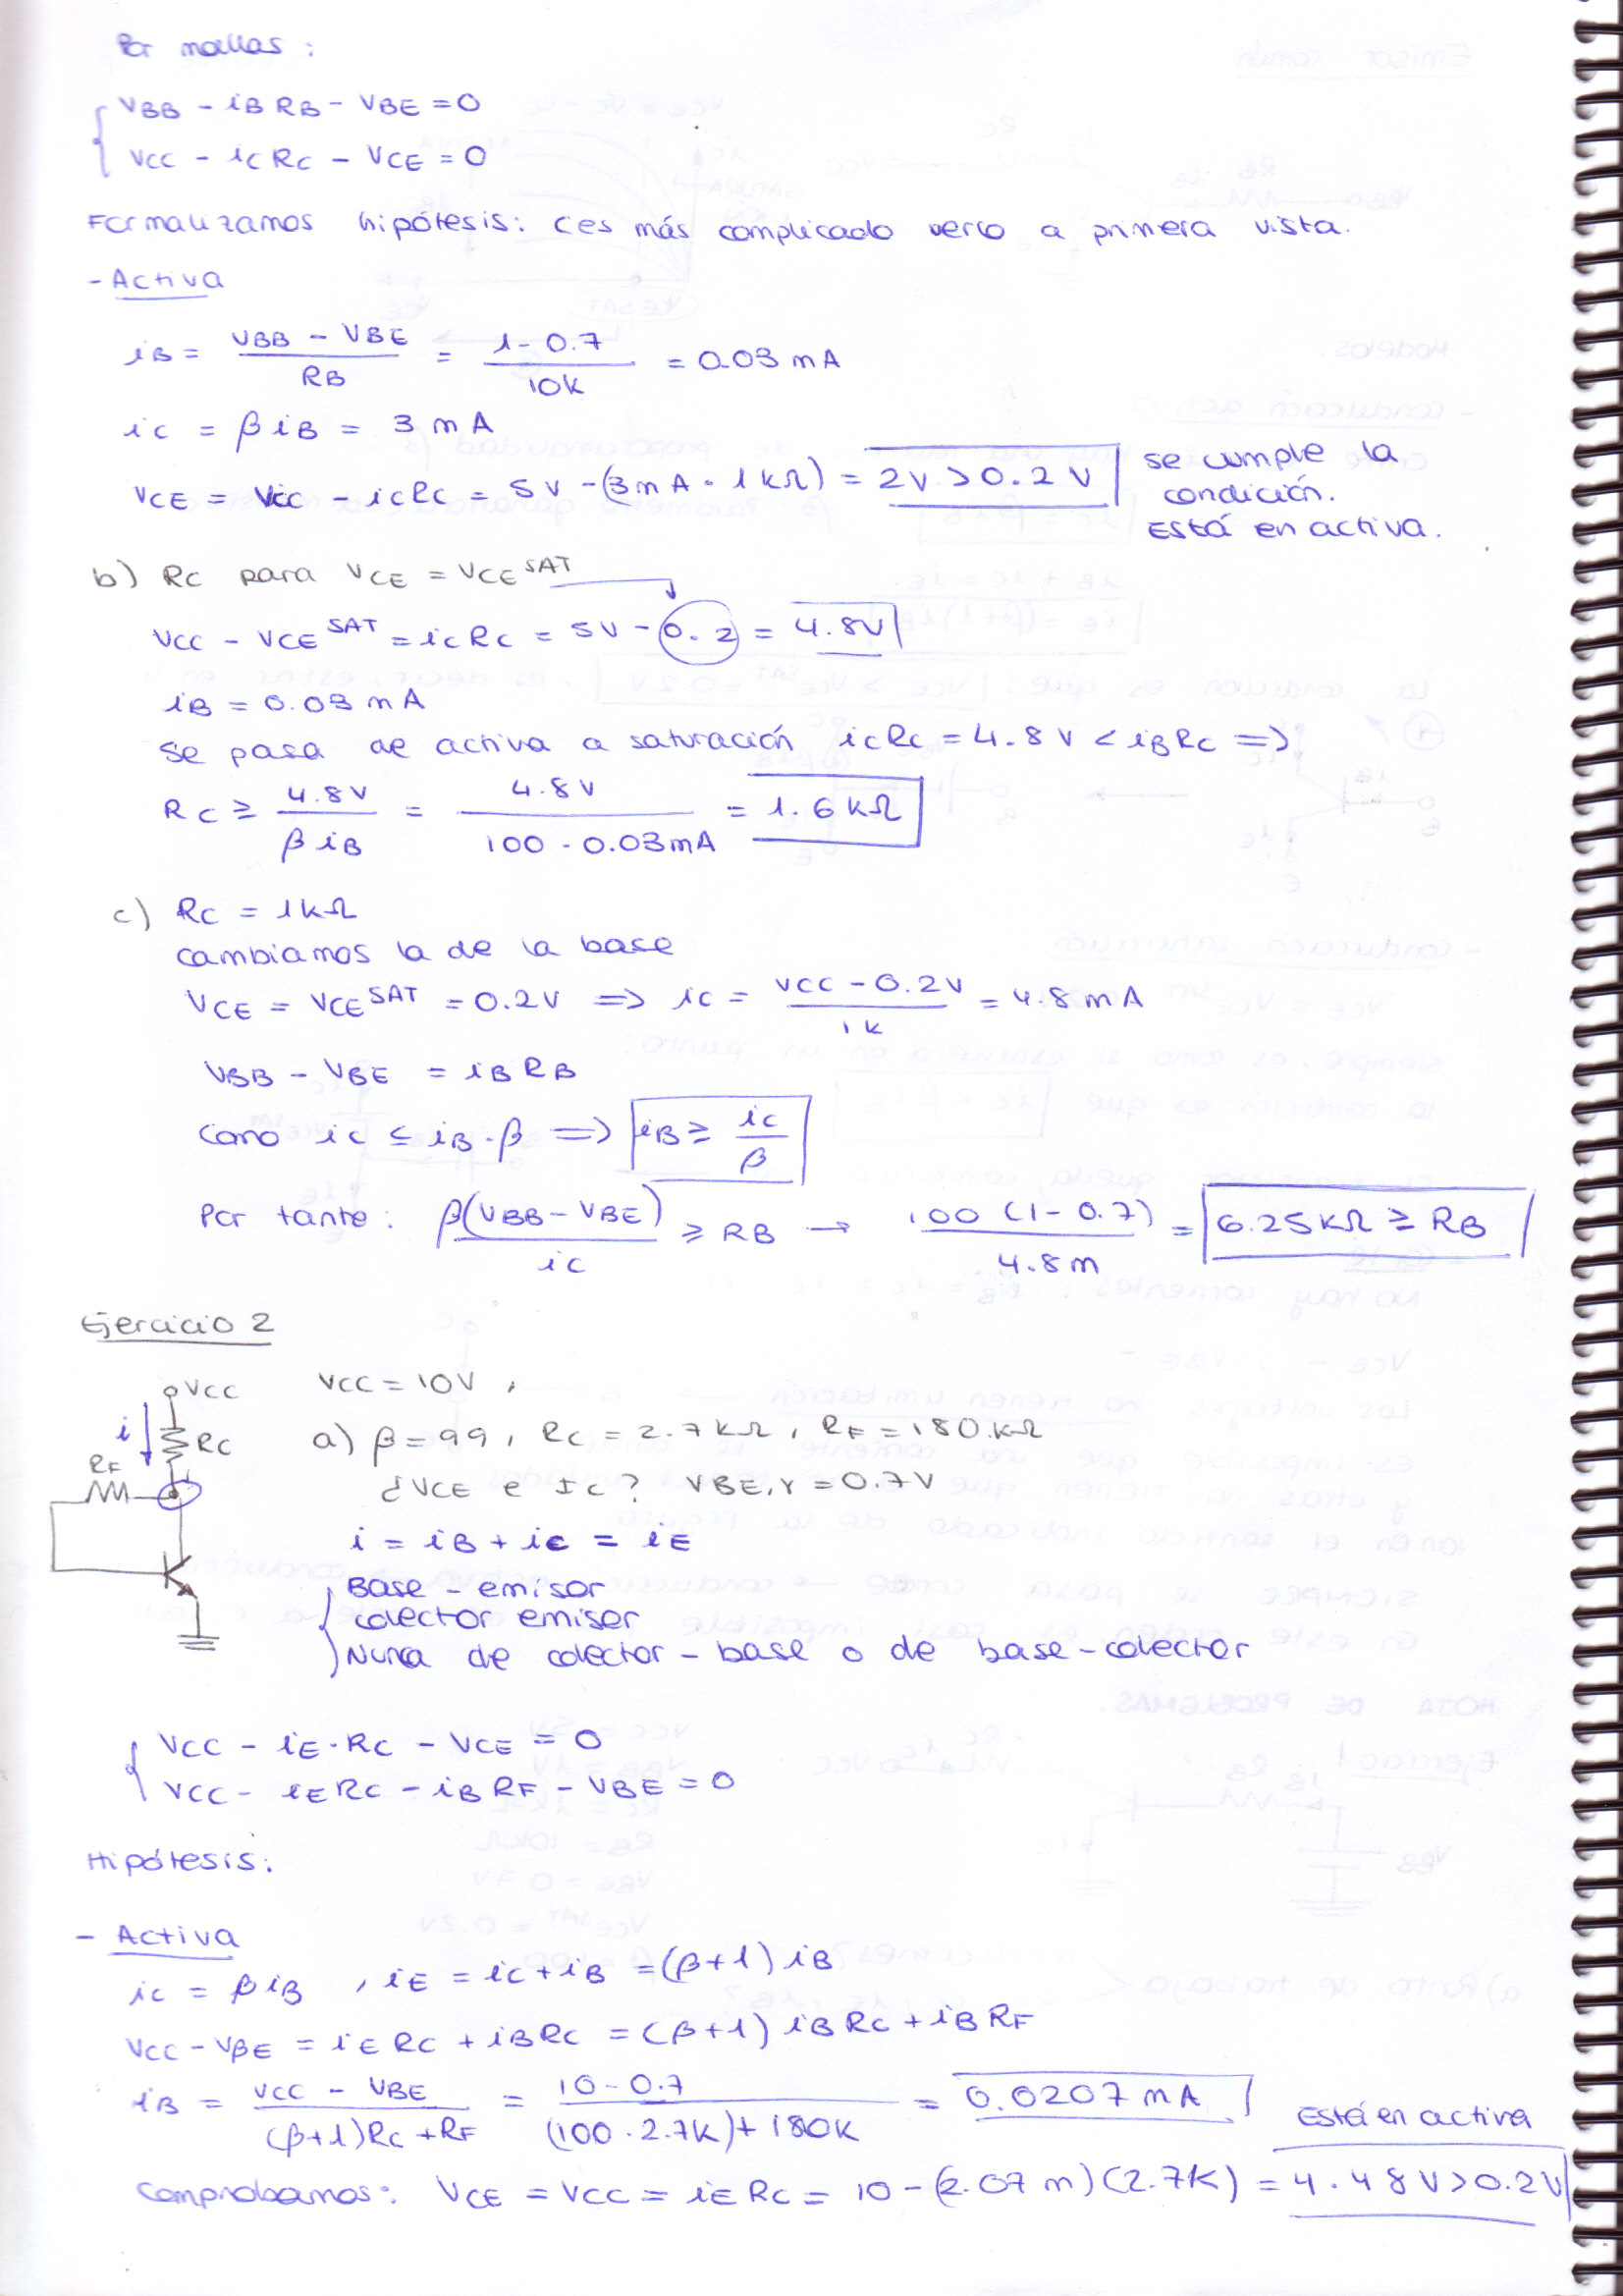 Por mallas :
VBB - iB RB - VBE = 0
VCC - iC RC - VCE = 0
Formalizamos hipótesis: (es más complicado verlo a primera vista.
- Activa
iB = (VBB - VBE)/RB = (1 - 0.7)/10k = 0.03 mA
iC = β iB = 3 mA
VCE = VCC - iCRC = 5V - (3mA · 1kΩ) = 2V > 0.2 V se cumple la
condición.
Está en activa.
b) RC para VCE = VCE^SAT
VCC - VCE^SAT = iCRC = 5V - 0.2 = 4.8V
iB = 0.03 mA
Se pasa de activa a saturación iCRC = 4.8 V < iBRC =>
RC ≥ 4.8V/(β iB) = 4.8V/(100 · 0.03mA) = 1.6 kΩ
c) RC = 1kΩ
cambiamos la de la base
VCE = VCE^SAT = 0.2V => iC = (VCC - 0.2V)/1k = 4.8 mA
VBB - VBE = iB RB
Como iC ≤ iB · β => iB ≥ iC/β
Por tanto : β(VBB - VBE)/iC ≥ RB → 100 (1 - 0.7)/4.8m = 6.25kΩ ≥ RB
Ejercicio 2
VCC
i
RC
RF
VCC = 10V ,
a) β = 99 , RC = 2.7 kΩ , RF = 180 kΩ
¿VCE e IC ? VBE,γ = 0.7V
i = iB + iC = iE
Base - emisor
colector emisor
Nunca de colector - base o de base - colector
VCC - iE · RC - VCE = 0
VCC - iERC - iBRF - VBE = 0
Hipótesis:
- Activa
iC = β iB , iE = iC + iB = (β+1) iB
VCC - VBE = iE RC + iBRC = (β+1) iB RC + iB RF
iB = (VCC - VBE)/((β+1)RC + RF) = (10 - 0.7)/((100 · 2.7K) + 180K) = 0.0207 mA
Está en activa
Comprobamos: VCE = VCC = iE RC = 10 - (2.07 m)(2.7K) = 4.48V > 0.2V